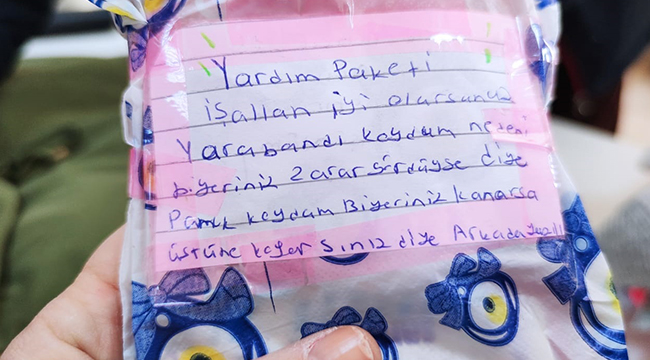 Yardım Paketi
işallan iyi olarsanuz
Yarabandı koydum nedeni
biyeriniz zarar gördüyse diye
Pamuk koydam Biyeriniz kanarsa
üstüne koyar sınız diye Arkada yazılı